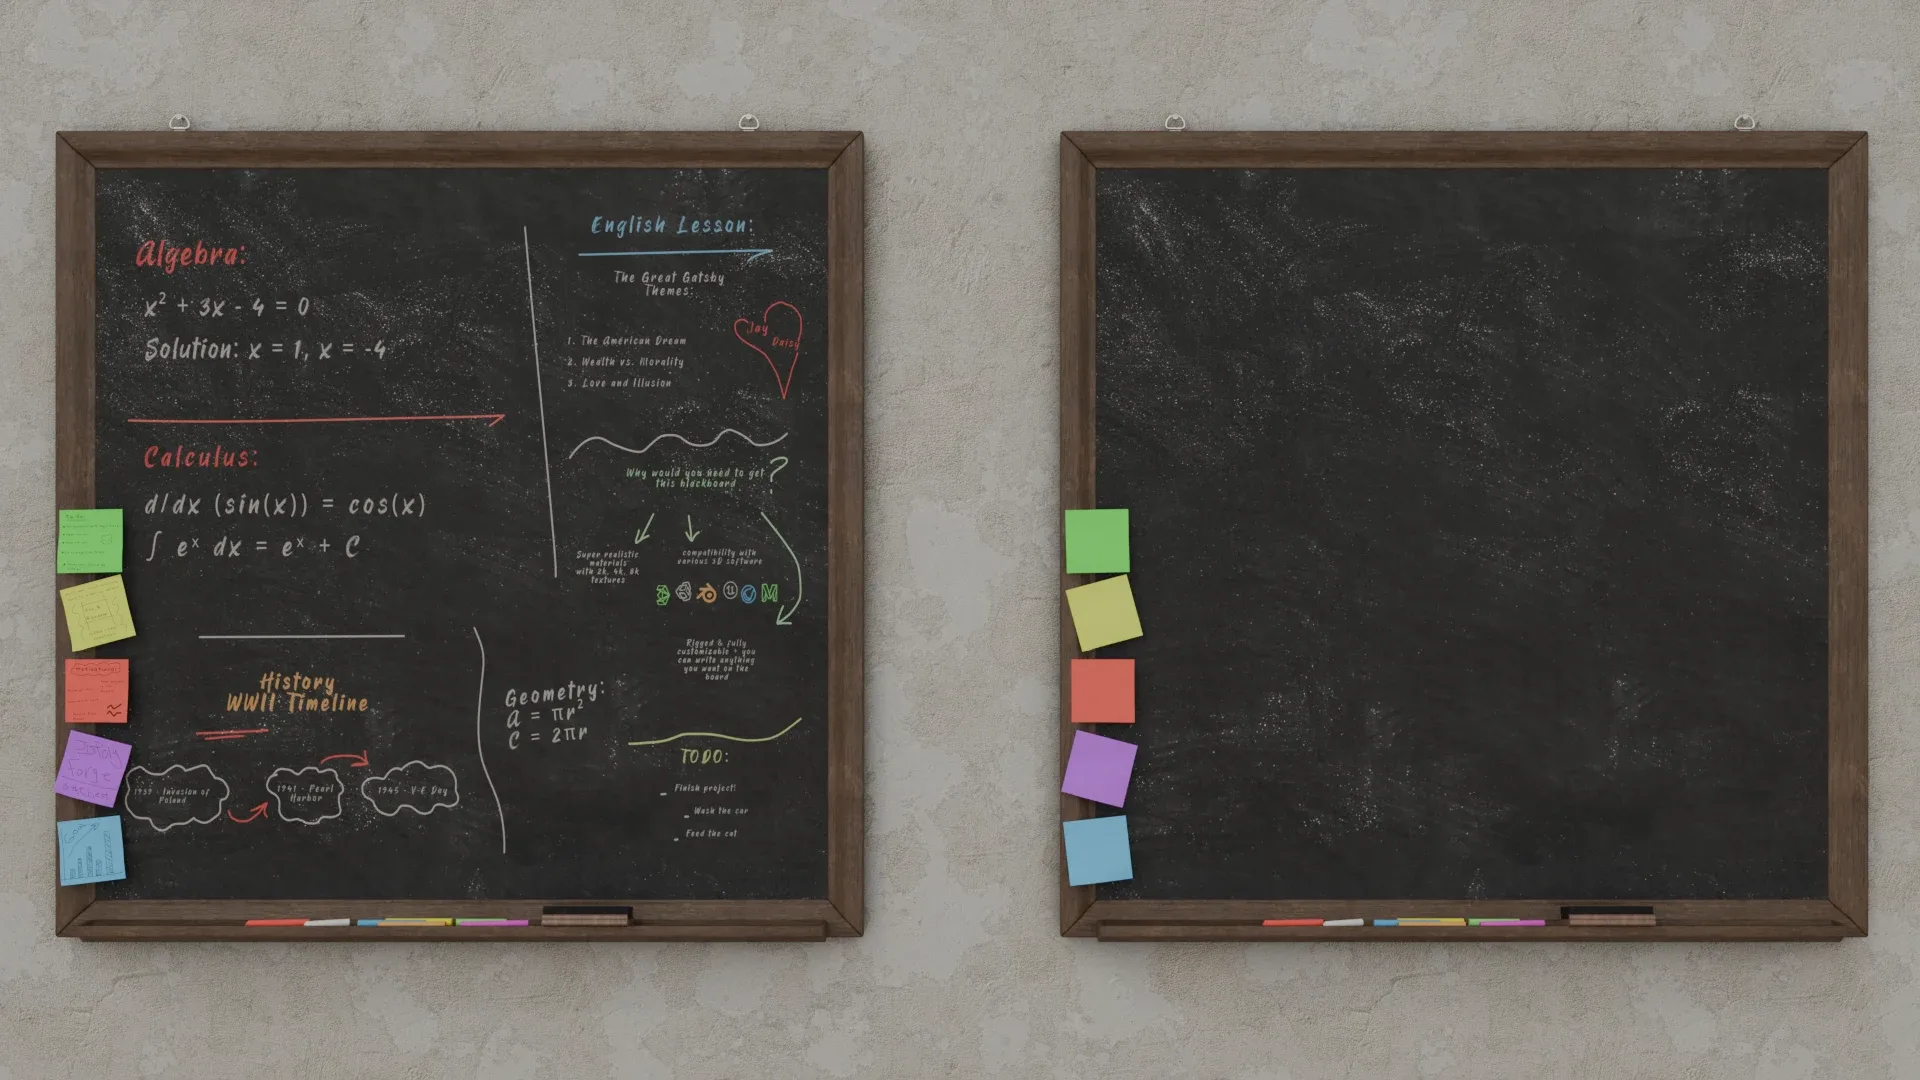 Algebra:
x² + 3x - 4 = 0
Solution: x = 1, x = -4
Calculus:
d/dx (sin(x)) = cos(x)
∫ eˣ dx = eˣ + C
History
WWII Timeline
1939 - Invasion of
Poland
1941 - Pearl
Harbor
1945 - V-E Day
Geometry:
A = πr²
C = 2πr
English Lesson:
The Great Gatsby
Themes:
1. The American Dream
2. Wealth vs. Morality
3. Love and Illusion
Jay
Daisy
Why would you need to get
this blackboard
?
Super realistic
materials
with 2k, 4k, 8k
textures
compatibility with
various 3D software
Rigged & fully
customizable - you
can write anything
you want on the
board
TODO:
- Finish project!
- Wash the car
- Feed the cat